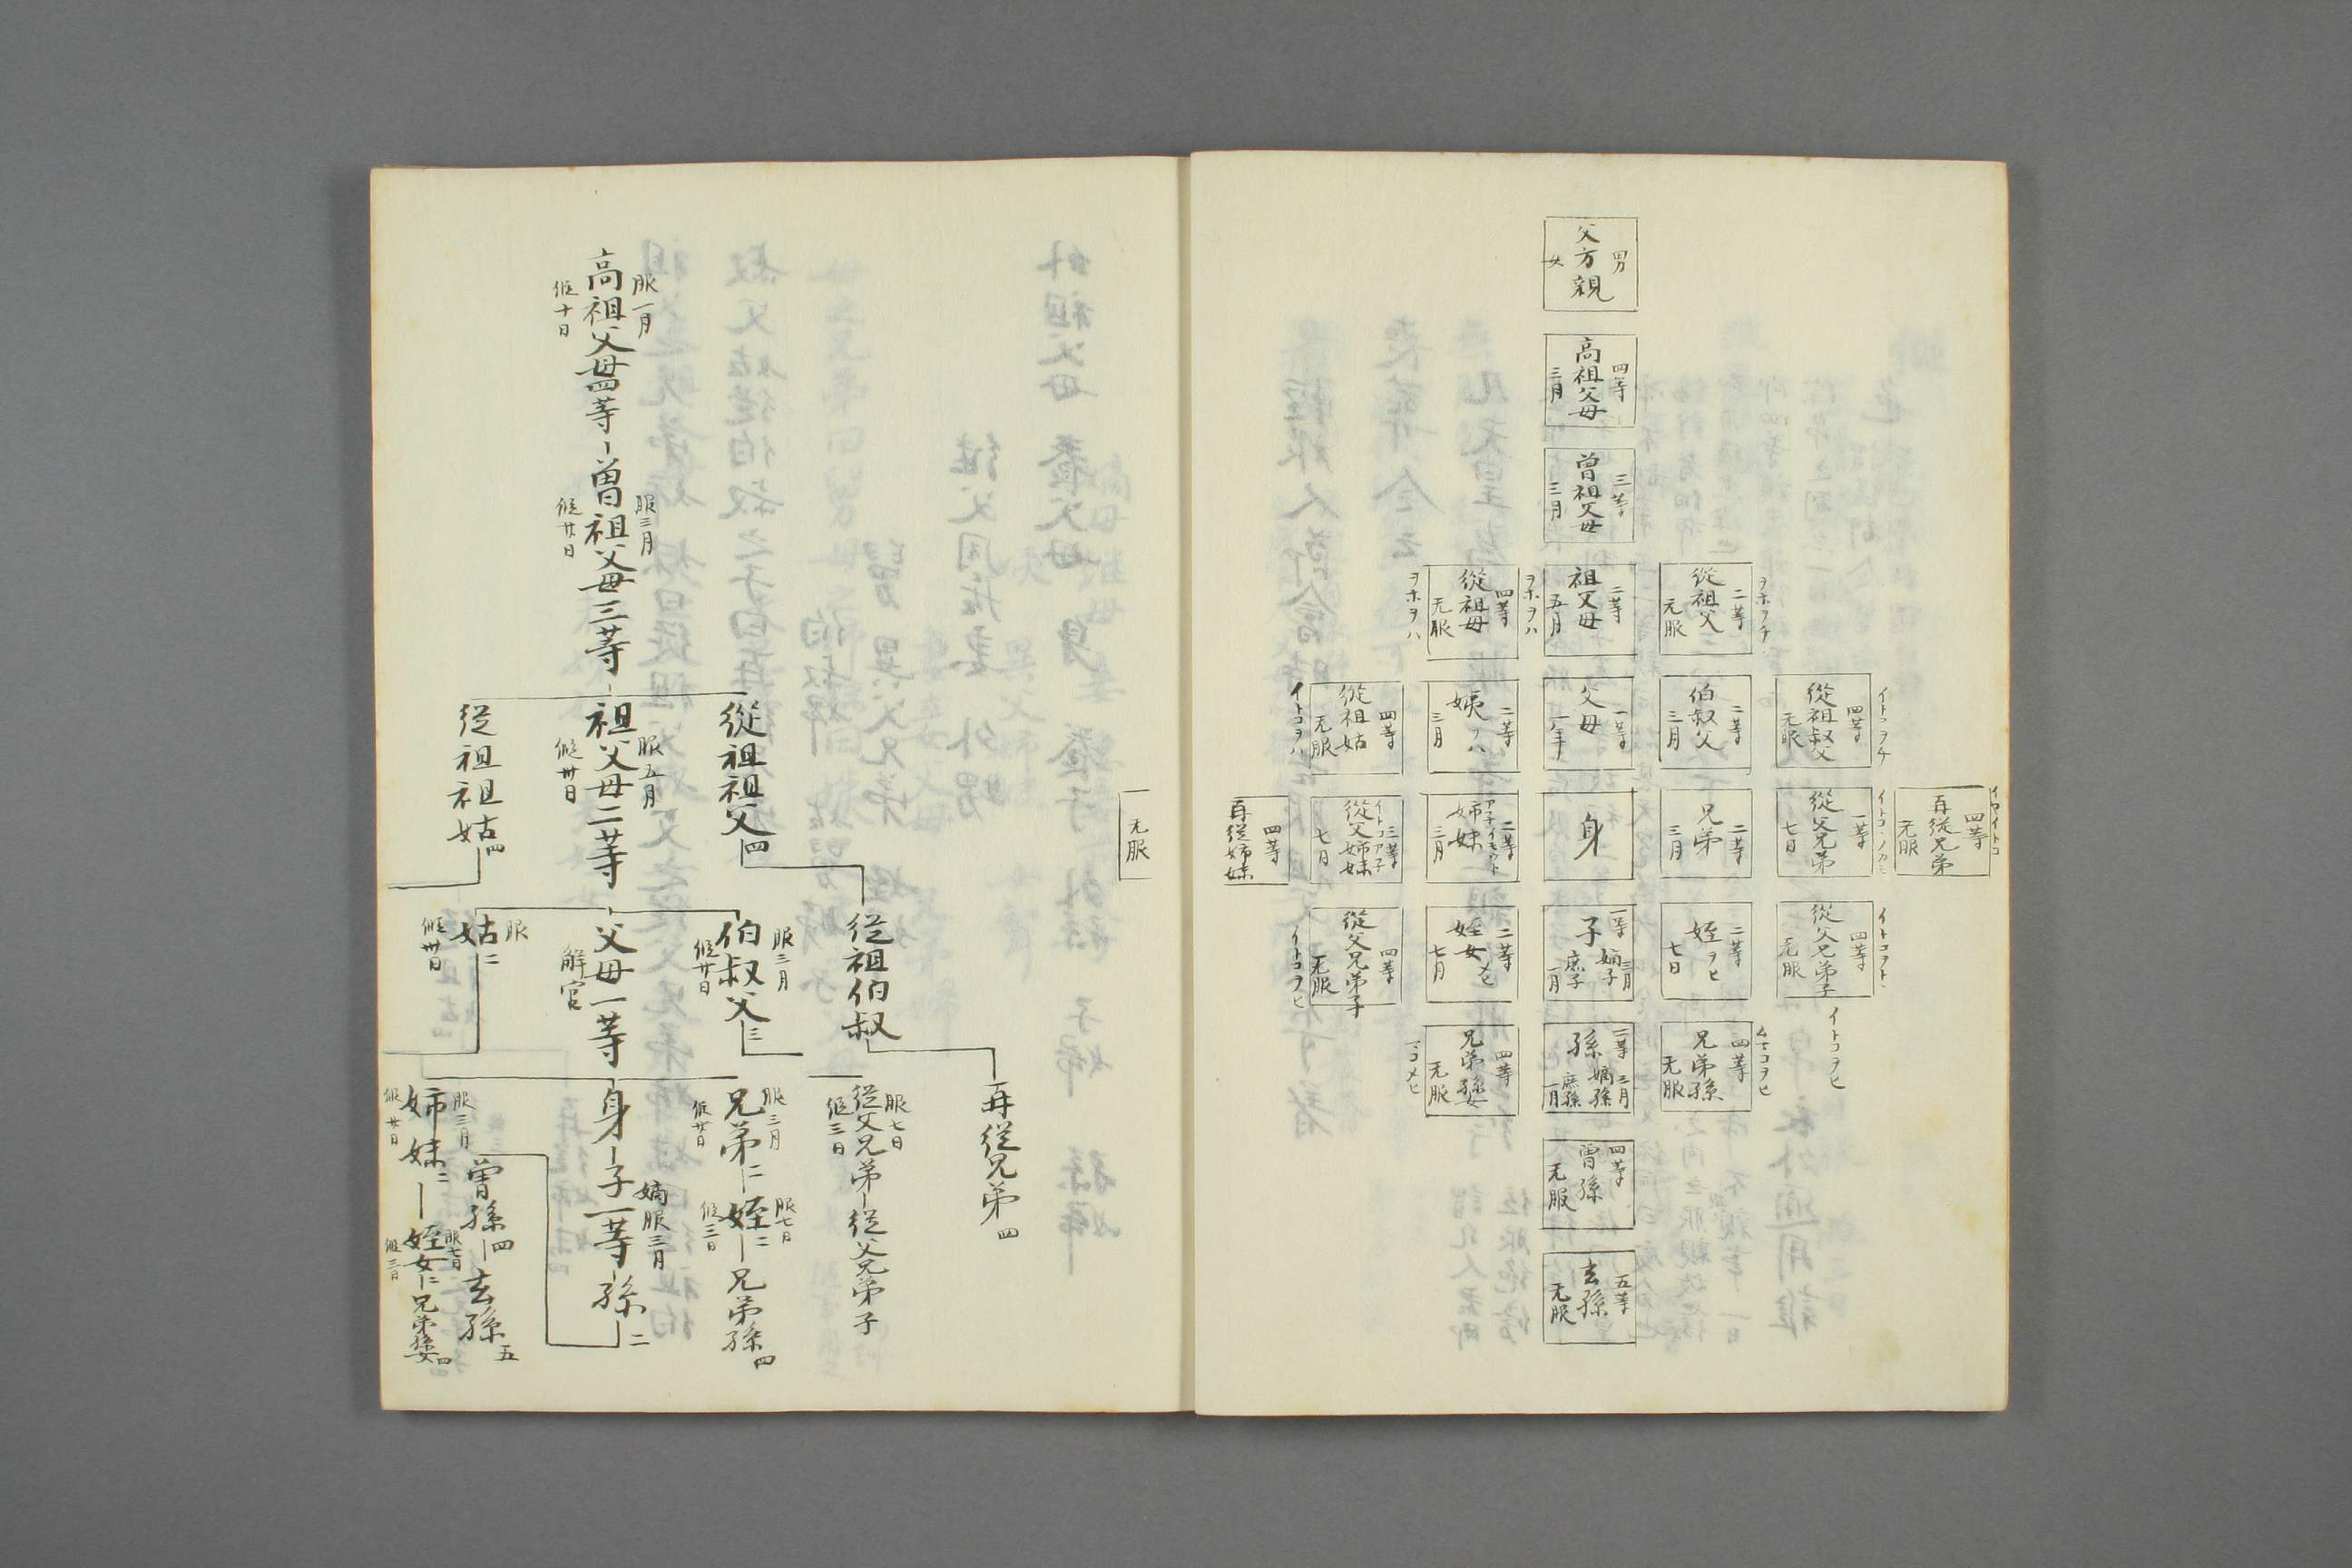 男
父方親
女
四等
高祖父母
三月
三等
曽祖父母
三月
ヲホヲチ
二等
從祖父
无服
二等
祖父母
五月
ヲホヲハ
四等
從祖母
无服
ヲホヲハ
イトコヲチ
四等
從祖叔父
无服
二等
伯叔父
三月
一等
父母
一年
二等
姨ヲハ
三月
四等
從祖姑
无服
イトコヲハ
四等
再従兄弟
无服
一等
從父兄弟
七日
二等
兄弟
三月
身
二等
姉妹
三月
三等
從父姉妹
七日
四等
再従姉妹
无服
イトコヲトヽ
四等
從父兄弟子
无服
イトコヲヒ
二等
姪ヲヒ
七日
一等
子
嫡子三月
庶子一月
二等
姪女メヒ
七月
四等
從父兄弟子
无服
イトコヲヒ
四等
兄弟孫
无服
二等
孫
嫡孫三月
庶孫一月
四等
兄弟孫女
无服
四等
曽孫
无服
五等
玄孫
无服
服一月
高祖父母四等
假十日
服三月
曽祖父母三等
假廿日
從祖祖父四
服五月
祖父母二等
假卅日
従祖祖姑四
従祖伯叔
服三月
伯叔父三
假廿日
父母一等
解官
服
姑二
假卅日
再従兄弟四
服七日
従父兄弟
假三日
従父兄弟子
服三月
兄弟二
假廿日
服七日
姪二
假三日
兄弟孫四
身
子一等
嫡服三月
孫二
曽孫四
玄孫五
服三月
姉妹二
假廿日
服七日
姪女二
假三日
兄弟孫女四